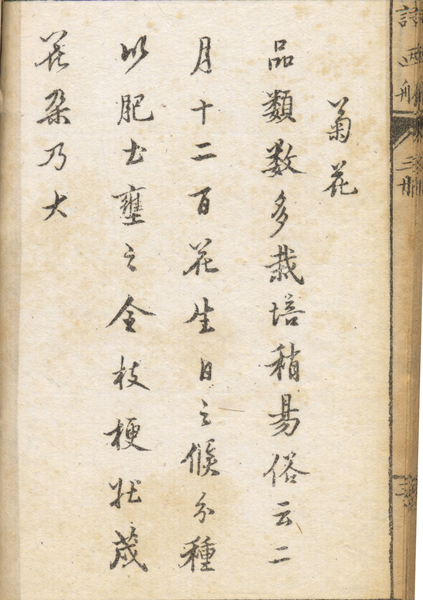 菊花
品類数多栽培稍易俗云二
月十二百花生日之候分種
以肥土壅之令枝梗壯茂
花朶乃大
詩画舫